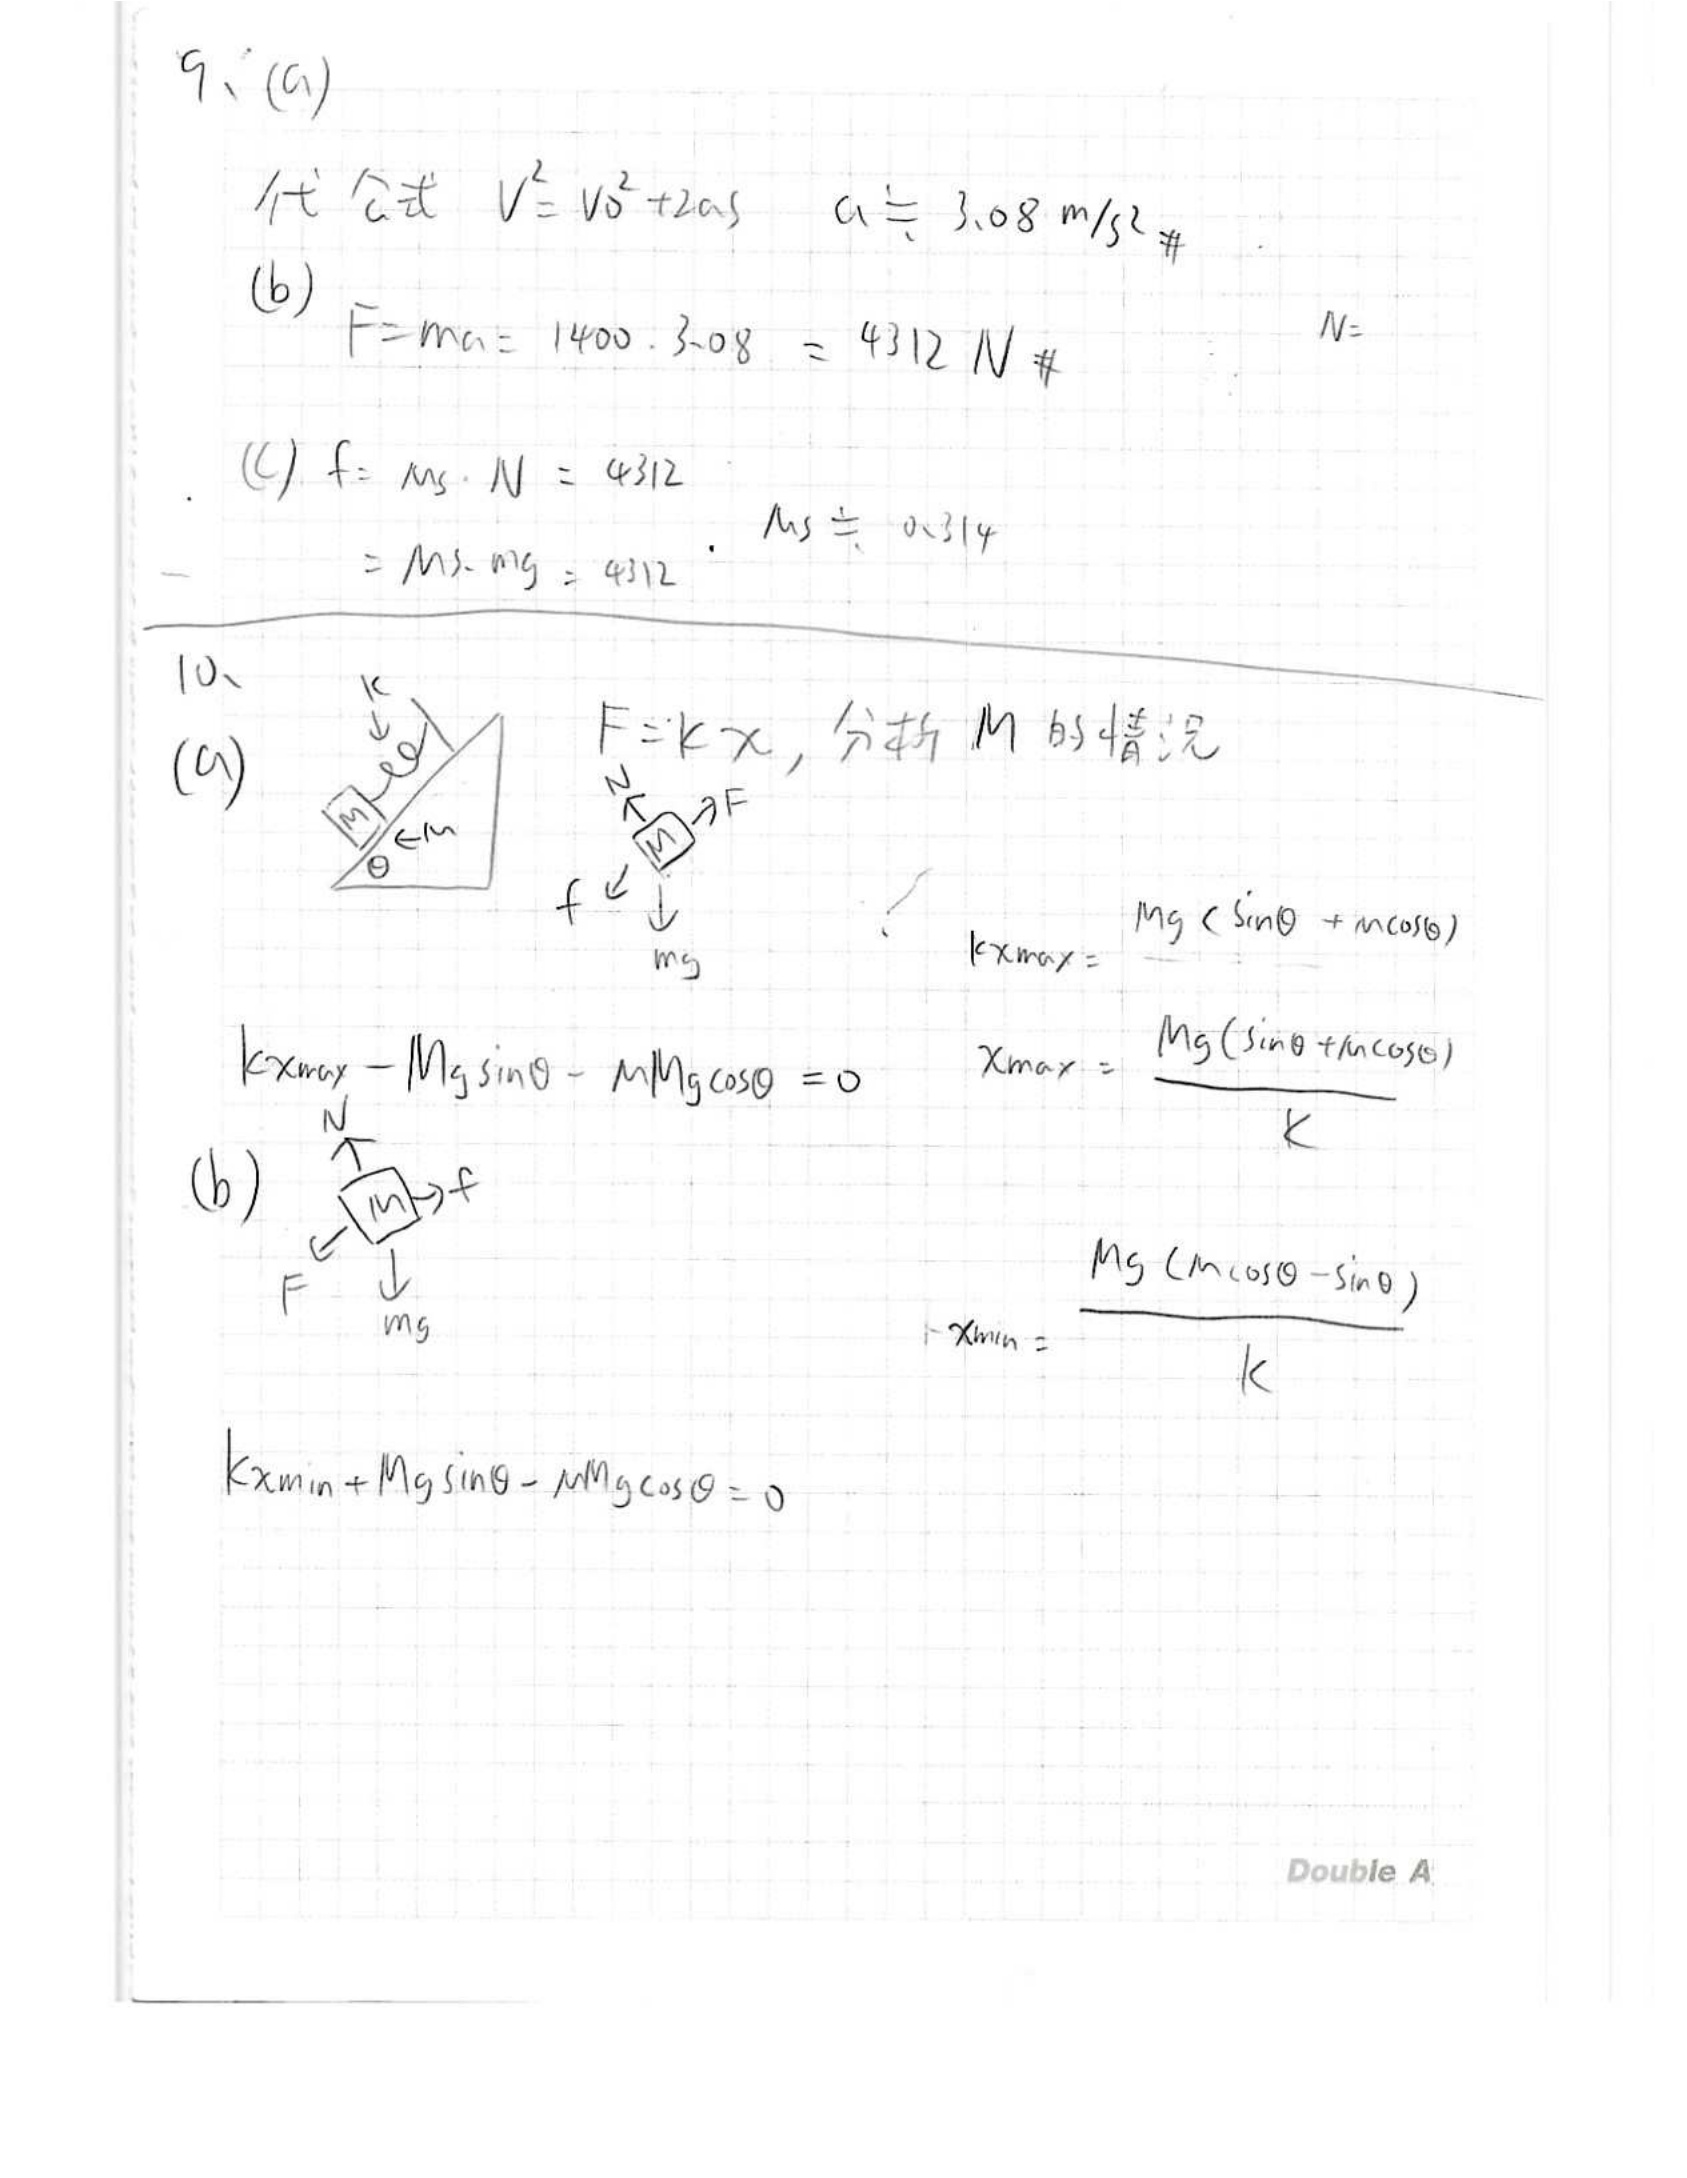 9、(a)
代公式 V²=V0²+2as a≒3.08 m/s² #
(b)
F=ma= 1400·3.08 = 4312 N #
N=
(c) f= Ms·N = 4312
= Ms·mg = 4312
Ms ≒ 0.314
10、
(a)
K
M
θ ←M
F=kx, 分析 M 的情况
N
F
M
f
mg
kxmax= Mg(sinθ+Mcosθ)
kxmax - Mgsinθ - MMgcosθ = 0
xmax = Mg(sinθ+Mcosθ)
K
(b)
N
M
f
F
mg
-xmin = Mg(Mcosθ-sinθ)
k
kxmin+Mgsinθ-MMgcosθ=0
Double A